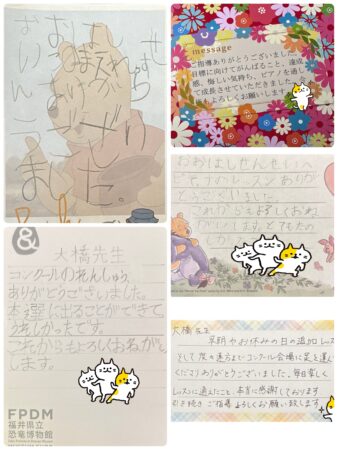 ました。
message
ご指導ありがとうございました。
目標に向けてがんばること、達成
感、悔しい気持ち、ピアノを通し
て成長させていただきました。今
後もよろしくお願いします。
おおはしせんせいへ
レッスンありが
とうございました
これからもよろしくおね
がいします。
&
大橋先生
コンクールのれんしゅう、
ありがとうございました。
本選に出ることができて
うれしかったです。
これからもよろしくおねがい
します。
FPDM
福井県立
恐竜博物館
大橋先生
早朝やお休みの日の追加レッス
そして コンクール会場に足を運ん
くださりありがとうございました。毎日楽しく
レッスンに通えたこと、本当に感謝しております
引き続きご指導よろしくお願い致します